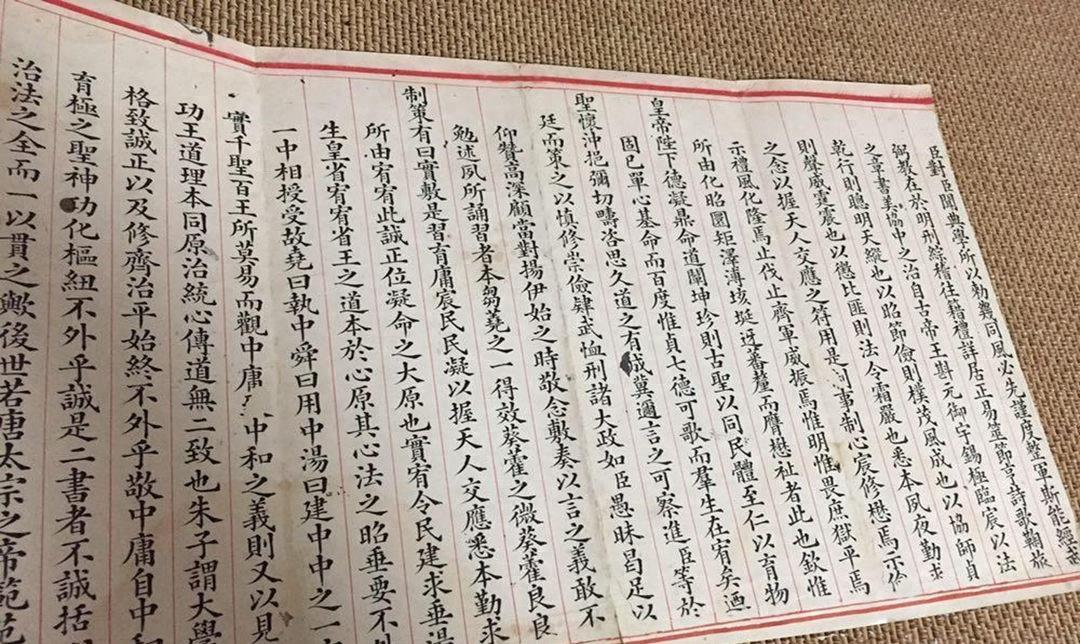 臣對臣聞典學所以勅幾同風必先謹度整軍斯能經武
弼教在於明刑綜稽往籍禮詳居正易筮節亨詩歌鞠旅
之章書美協中之治自古帝王斟元御宇錫極臨宸以法
乾行則聰明天縱也以昭節儉則樸茂風成也以協師貞
則聲威震疊也以懲比匪則法令霜嚴也悉本夙夜勤求
之念以握天人交應之符用是事制心宸修懋焉示儉
示禮風化隆焉止伐止齊軍威振焉惟明惟畏庶獄平焉
所由化昭圜矩澤溥垓埏迓蕃釐而膺懋祉者此也欽惟
皇帝陛下德凝鼎命道闡坤珍則古聖以同民體至仁以育物
固已單心基命而百度惟貞七德可歌而羣生在宥矣迺
聖懷沖挹彌切疇咨思久道之有成冀邇言之可察進臣等於
廷而策之以慎修崇儉肄武恤刑諸大政如臣愚昧曷足以
仰贊高深顧當對揚伊始之時敬念敷奏以言之義敢不
勉述夙所誦習者本芻蕘之一得效葵藿之微葵藿良良
制策有曰實敷是習有庸宸民民凝以握天人交應悉本勤求
所由宥宥此誠正位凝命之大原也實宥令民建求垂湯
生皇省宥宥省王之道本於心原其心法之昭垂要不外
一中相授受故堯曰執中舜曰用中湯曰建中中之一
實千聖百王所莫易而觀中庸中和之義則又以見
功王道理本同原治統心傳道無二致也朱子謂大學
格致誠正以及修齊治平始終不外乎敬中庸自中和
育極之聖神功化樞紐不外乎誠是二書者不誠括
治法之全而一以貫之歟後世若唐太宗之帝範範